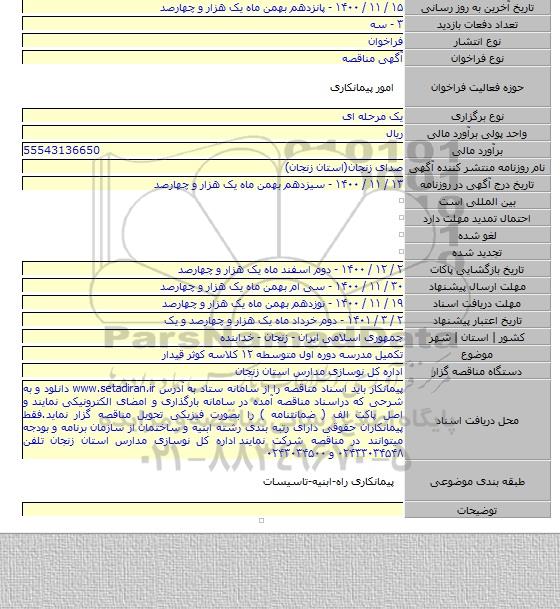 تاریخ آخرین به روز رسانی ۱۵ / ۱۱ / ۱۴۰۰ - پانزدهم بهمن ماه یک هزار و چهارصد
تعداد دفعات بازدید ۳ - سه
نوع انتشار فراخوان
نوع فراخوان آگهی مناقصه
حوزه فعالیت فراخوان امور پیمانکاری
نوع برگزاری یک مرحله ای
واحد پولی برآورد مالی ریال
برآورد مالی 55543136650
نام روزنامه منتشر کننده آگهی صدای زنجان(استان زنجان)
تاریخ درج آگهی در روزنامه ۱۳ / ۱۱ / ۱۴۰۰ - سیزدهم بهمن ماه یک هزار و چهارصد
بین المللی است
احتمال تمدید مهلت دارد
لغو شده
تجدید شده
تاریخ بازگشایی پاکات ۲ / ۱۲ / ۱۴۰۰ - دوم اسفند ماه یک هزار و چهارصد
مهلت ارسال پیشنهاد ۳۰ / ۱۱ / ۱۴۰۰ - سی ام بهمن ماه یک هزار و چهارصد
مهلت دریافت اسناد ۱۹ / ۱۱ / ۱۴۰۰ - نوزدهم بهمن ماه یک هزار و چهارصد
تاریخ اعتبار پیشنهاد ۲ / ۳ / ۱۴۰۱ - دوم خرداد ماه یک هزار و چهارصد و یک
کشور | استان | شهر جمهوری اسلامی ایران - زنجان - خدابنده
موضوع تکمیل مدرسه دوره اول متوسطه ۱۲ کلاسه کوثر قیدار
دستگاه مناقصه گزار اداره کل نوسازی مدارس استان زنجان
محل دریافت اسناد پیمانکار باید اسناد مناقصه را از سامانه ستاد به آدرس www.setadiran.ir دانلود و به
شرحی که دراسناد مناقصه آمده در سامانه بارگذاری و امضای الکترونیکی نمایند و
اصل پاکت الف ( ضمانتنامه ) را بصورت فیزیکی تحویل مناقصه گزار نماید.فقط
پیمانکاران حقوقی دارای رتبه بندی رشته ابنیه و ساختمان از سازمان برنامه و بودجه
میتوانند در مناقصه شرکت نمایند.اداره کل نوسازی مدارس استان زنجان تلفن
۰۲۴۳۳۰۳۴۵۴۸ و ۰۲۴۳۰۳۴۵۰۰
طبقه بندی موضوعی پیمانکاری راه-ابنیه-تاسیسات
توضیحات
ParsNamadData
۰۲۱-۸۸۳۴۹۶۷۰-۵